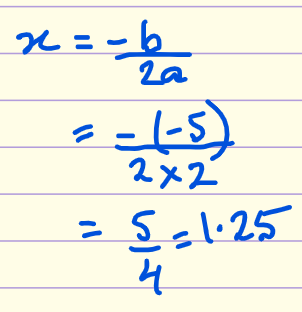 x = -b/2a
= -(-5)/2×2
= 5/4 = 1.25